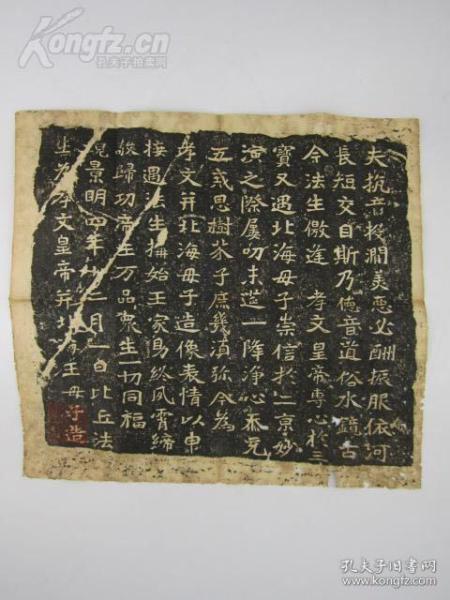 夫抗音投澗美惡必酬振服依河
長短交目斯乃德音道俗水鏡古
今法生儌逢 孝文皇帝專心於三
寶又遇北海母子崇信於二京妙
演之際屢叨末筵一降淨心忝充
五戒思樹芥子庶幾須彌今為
孝文并北海母子造像表情以申
接遇法生構始王家助終夙霄締
敬歸功帝王万品眾生一切同福
魏景明四年十二月一日比丘法
生為孝文皇帝并北海王母子造
Kongfz.cn
孔夫子拍卖网
孔夫子旧书网
www.kongfz.com